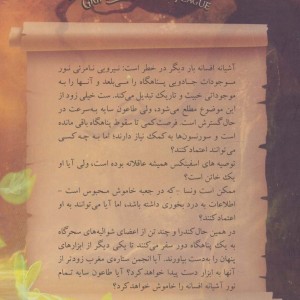 GRIP ... PLAGUE
آشیانه افسانه بار دیگر در خطر است: نیرویی نامرئی نور
موجودات جادویی پناهگاه را می‌بلعد و آنها را به
موجوداتی خبیث و تاریک تبدیل می‌کند. ست خیلی زود از
این موضوع مطلع می‌شود، ولی طاعون سایه به‌سرعت در
حال گسترش است. فرصت کمی تا سقوط پناهگاه باقی مانده
است و سورنسون‌ها به کمک نیاز دارند؛ اما به چه کسی
می‌توانند اعتماد کنند؟
توصیه های اسفینکس همیشه عاقلانه بوده است، ولی آیا او
یک خائن است؟
ممکن است ونسا - که در جعبه خاموش محبوس است -
اطلاعات به درد بخوری داشته باشد، اما آیا می‌توانند به او
اعتماد کنند؟
در همین حال کندرا و چند تن از اعضای شوالیه‌های سحرگاه
به یک پناهگاه دور سفر می‌کنند تا یکی دیگر از ابزارهای
پنهان را به‌دست بیاورند. آیا انجمن ستاره‌ی مغرب زودتر از
آنها به ابزار دست پیدا خواهد کرد؟ آیا طاعون سایه تمام
نور آشیانه افسانه را خاموش خواهد کرد؟